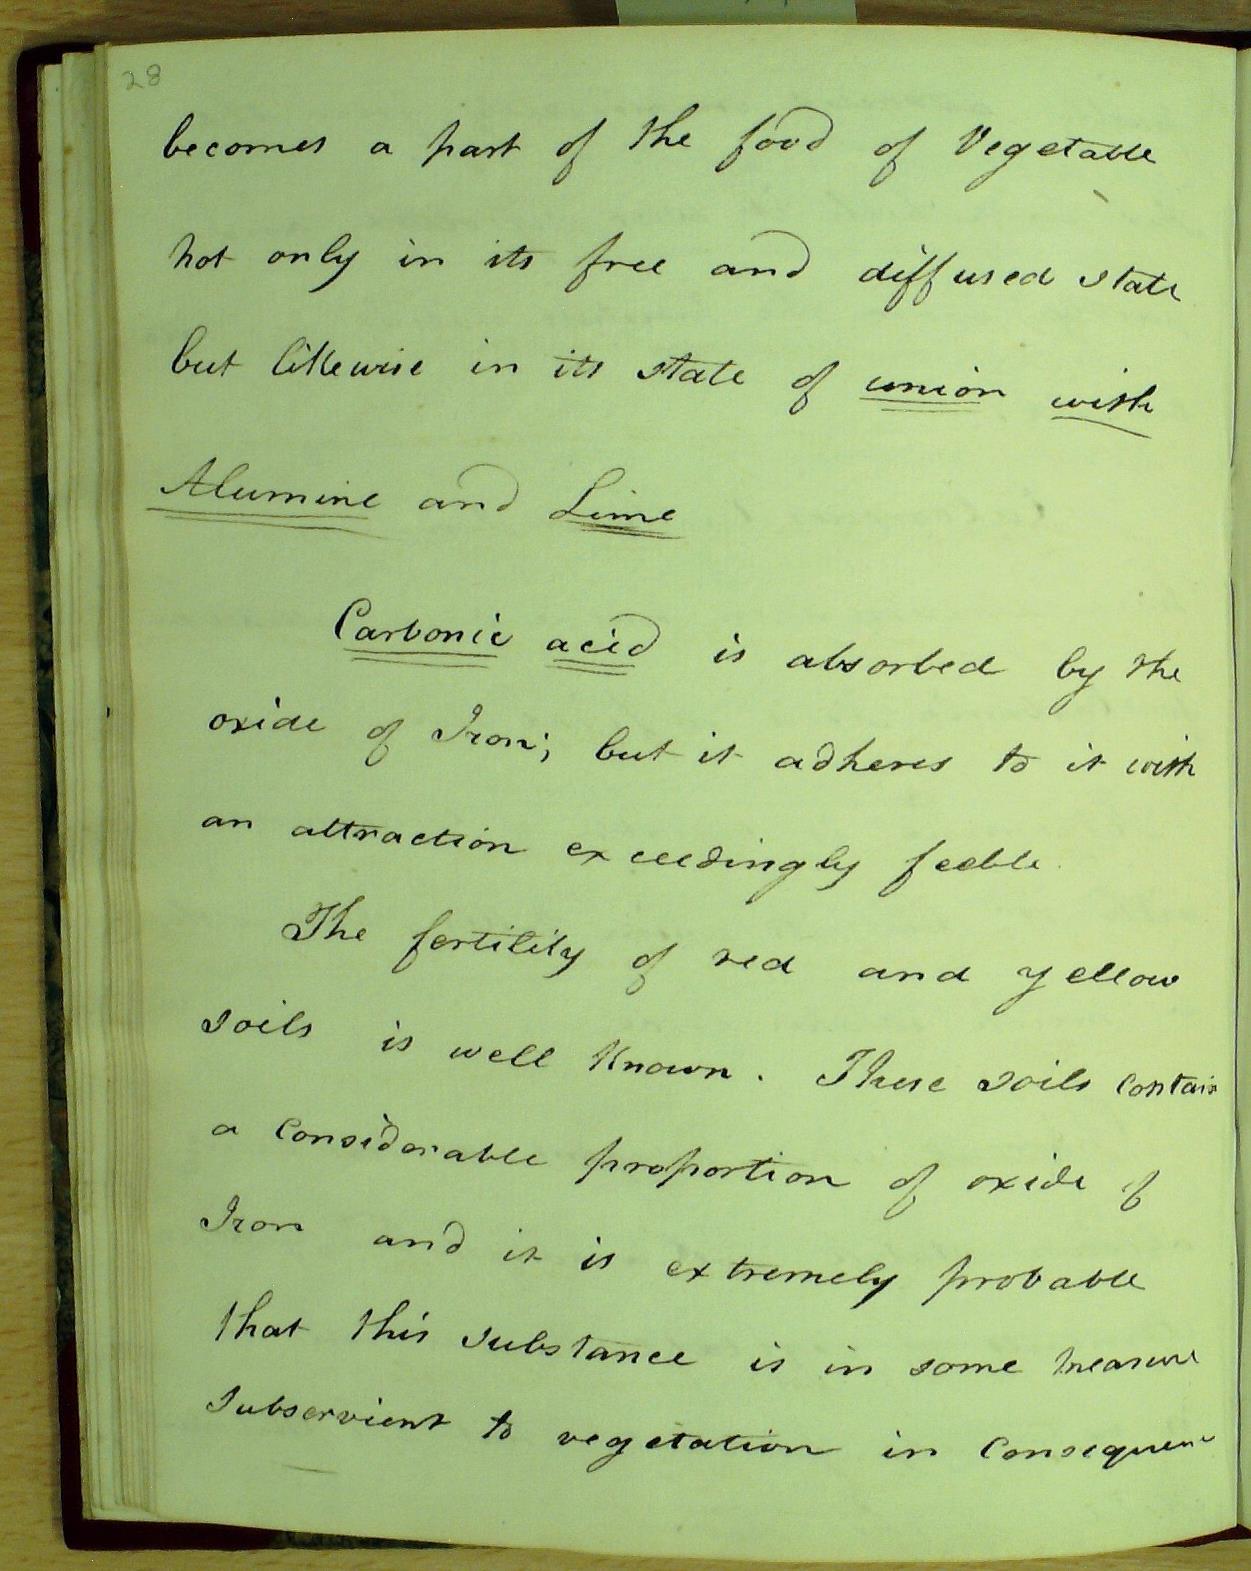 28
becomes a part of the food of Vegetable
not only in its free and diffused state
but likewise in its state of union with
Alumine and Lime
Carbonic acid is absorbed by the
oxide of Iron; but it adheres to it with
an attraction exceedingly feeble.
The fertility of red and yellow
soils is well known. These soils contain
a considerable proportion of oxide of
Iron and it is extremely probable
that this substance is in some measure
subservient to vegetation in consequence